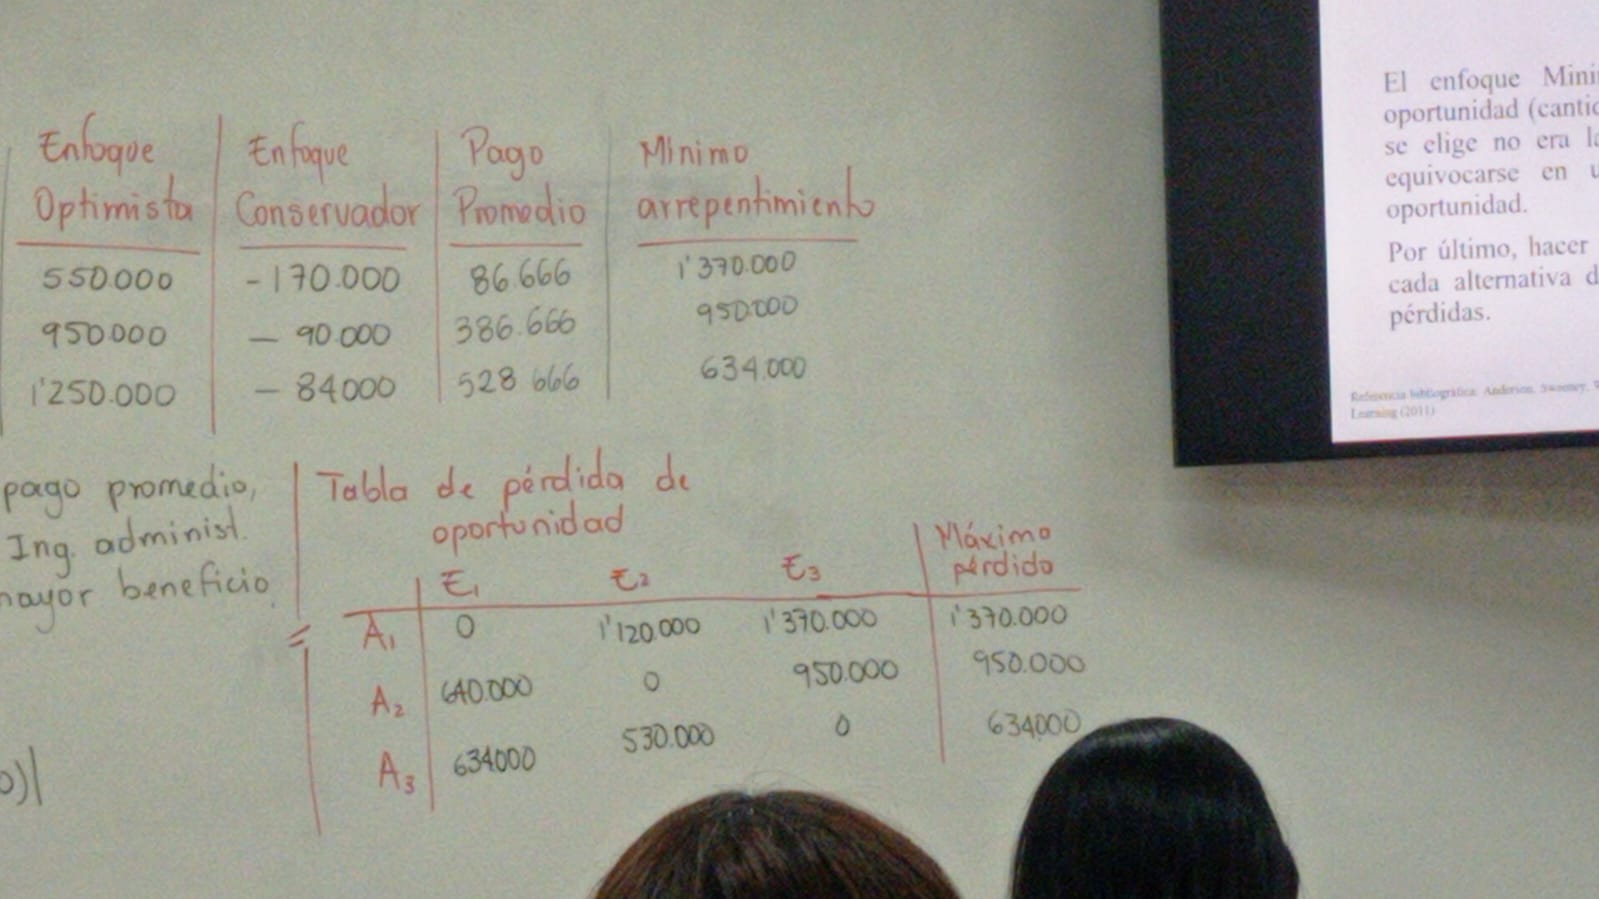 Enfoque Enfoque Pago Minimo
Optimista Conservador Promedio arrepentimiento
550.000 -170.000 86.666 1'370.000
950.000 - 90.000 386.666 950.000
1'250.000 - 84000 528 666 634.000
pago promedio,
Ing. administ.
mayor beneficio
Tabla de pérdida de
oportunidad
E1 E2 E3 Máximo
pérdido
A1 0 1'120.000 1'370.000 1'370.000
A2 640.000 0 950.000 950.000
A3 634000 530.000 0 634000
o)
El enfoque Mini
oportunidad (cantid
se elige no era la
equivocarse en u
oportunidad.
Por último, hacer
cada alternativa d
pérdidas.
Referencia bibliográfica: Anderson, Sweeney, W
Learning (2011)